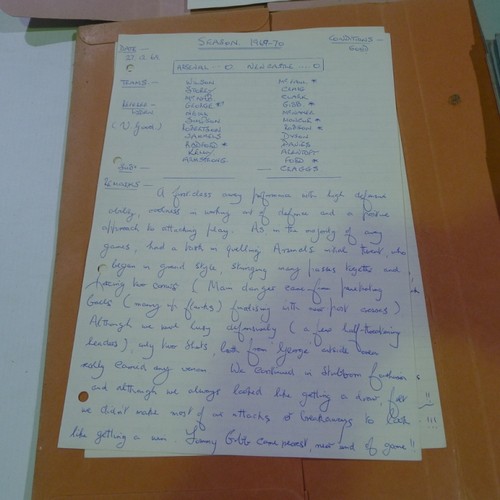 SEASON. 1969-70
CONDITIONS -
GOOD
DATE -
27.12.69.
ARSENAL ... 0 NEWCASTLE ... 0
TEAMS -
WILSON McFAUL *
STOREY CRAIG
McNAB CLARK
REFEREE - GEORGE *? GIBB *
(V. good)
SIMPSON MONCUR *
ROBERTSON ROBSON *
SAMMELS DYSON
RADFORD * DAVIES
KELLY
ARMSTRONG FORD *
SUBS - CRAGGS
REMARKS - A first class away performance with high defensive
ability, in working out of defence and a positive
approach to attacking play. As in the majority of away
games, had a bit in quelling Arsenal's initial thrust, who
began in grand style, stringing many passes together and
forcing two corners (Main danger came from penetrating
backs (moving up flanks) finishing with near post crosses)
Although we were busy defensively (a few half-
headers), only two shots, both from George outside area
really caused any worries. We continued in stubborn
and although we always looked like getting a draw, felt
we didn't make most of our attacks & breakaways to look
like getting a win. Tommy Gibb came nearest, near end of game!!